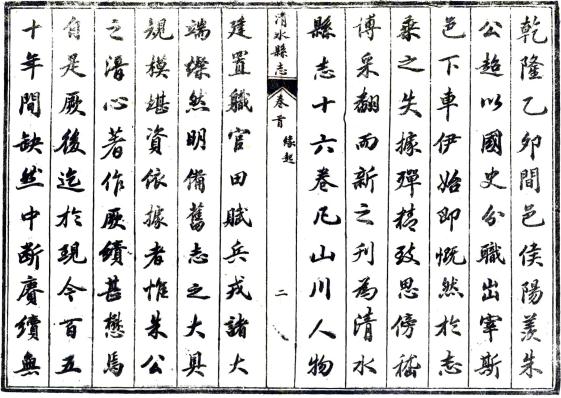 乾隆乙卯間邑侯陽羨朱
公超以國史分職出宰斯
邑下車伊始即慨然於志
乘之失據殫精致思傍嵇
博采翻而新之刊為清水
縣志十六卷凡山川人物
清水縣志
卷首
緣起
二
建置職官田賦兵戎諸大
端燦然明備舊志之大具
規模堪資依據者惟朱公
之潛心著作厥續甚懋焉
自是厥後迄於現今百五
十年間缺然中斷賡續無